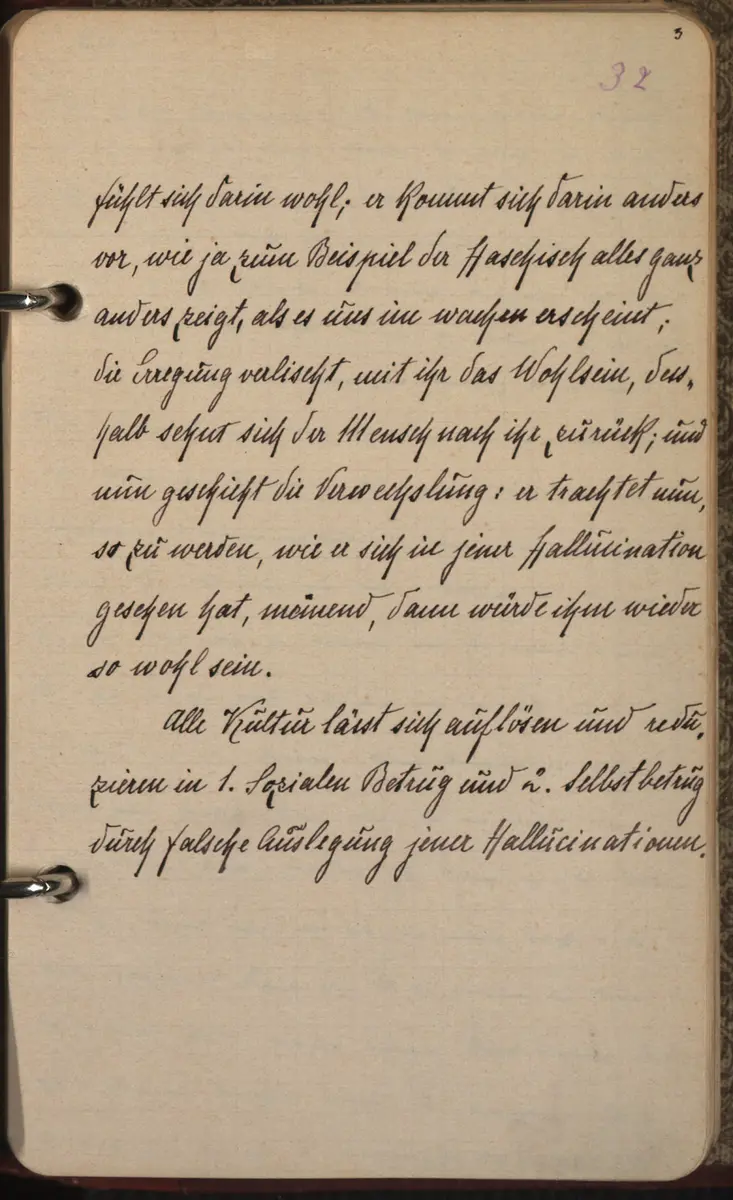 3
32
fühlt sich darin wohl; er kommt sich darin anders
vor, wie ja zum Beispiel der Haschisch alles ganz
anders zeigt, als es uns im wachen erscheint;
die Erregung verlischt, mit ihr das Wohlsein, des-
halb sehnt sich der Mensch nach ihr zurück; und
nun geschieht die Verwechslung: er trachtet nun,
so zu werden, wie er sich in jener Hallucination
gesehen hat, meinend, dann würde ihm wieder
so wohl sein.
Alle Kultur lässt sich auflösen und redu-
zieren in 1. Sozialen Betrug und 2. Selbstbetrug
durch falsche Auslegung jener Hallucinationen.